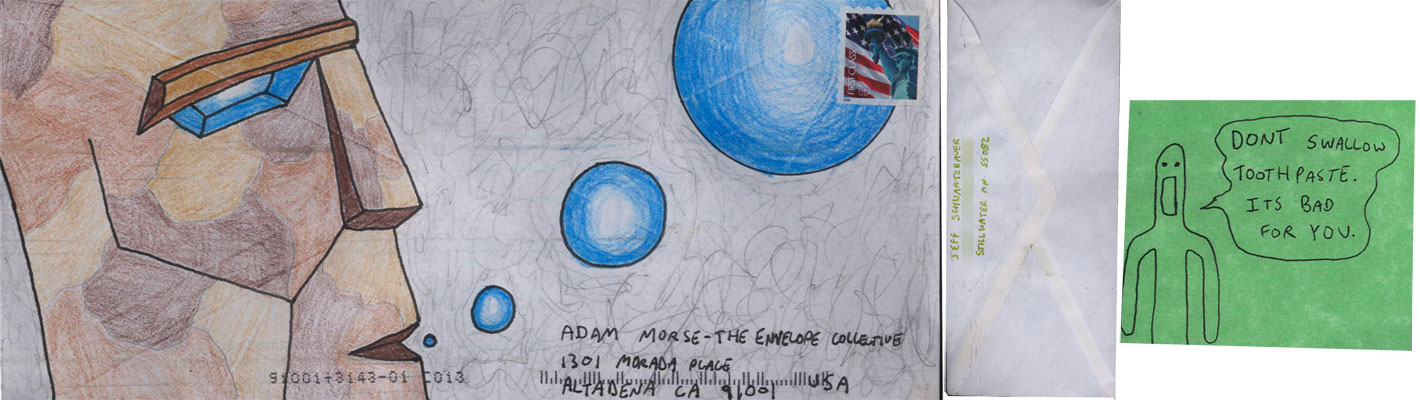 FIRST-CLASS
ADAM MORSE-THE ENVELOPE COLLECTIVE
1301 MORADA PLACE
ALTADENA CA 91001 USA
91001+3143-01 C013
JEFF SCHWARTZBAUER
STILLWATER MN 55082
DONT SWALLOW
TOOTHPASTE.
ITS BAD
FOR YOU.